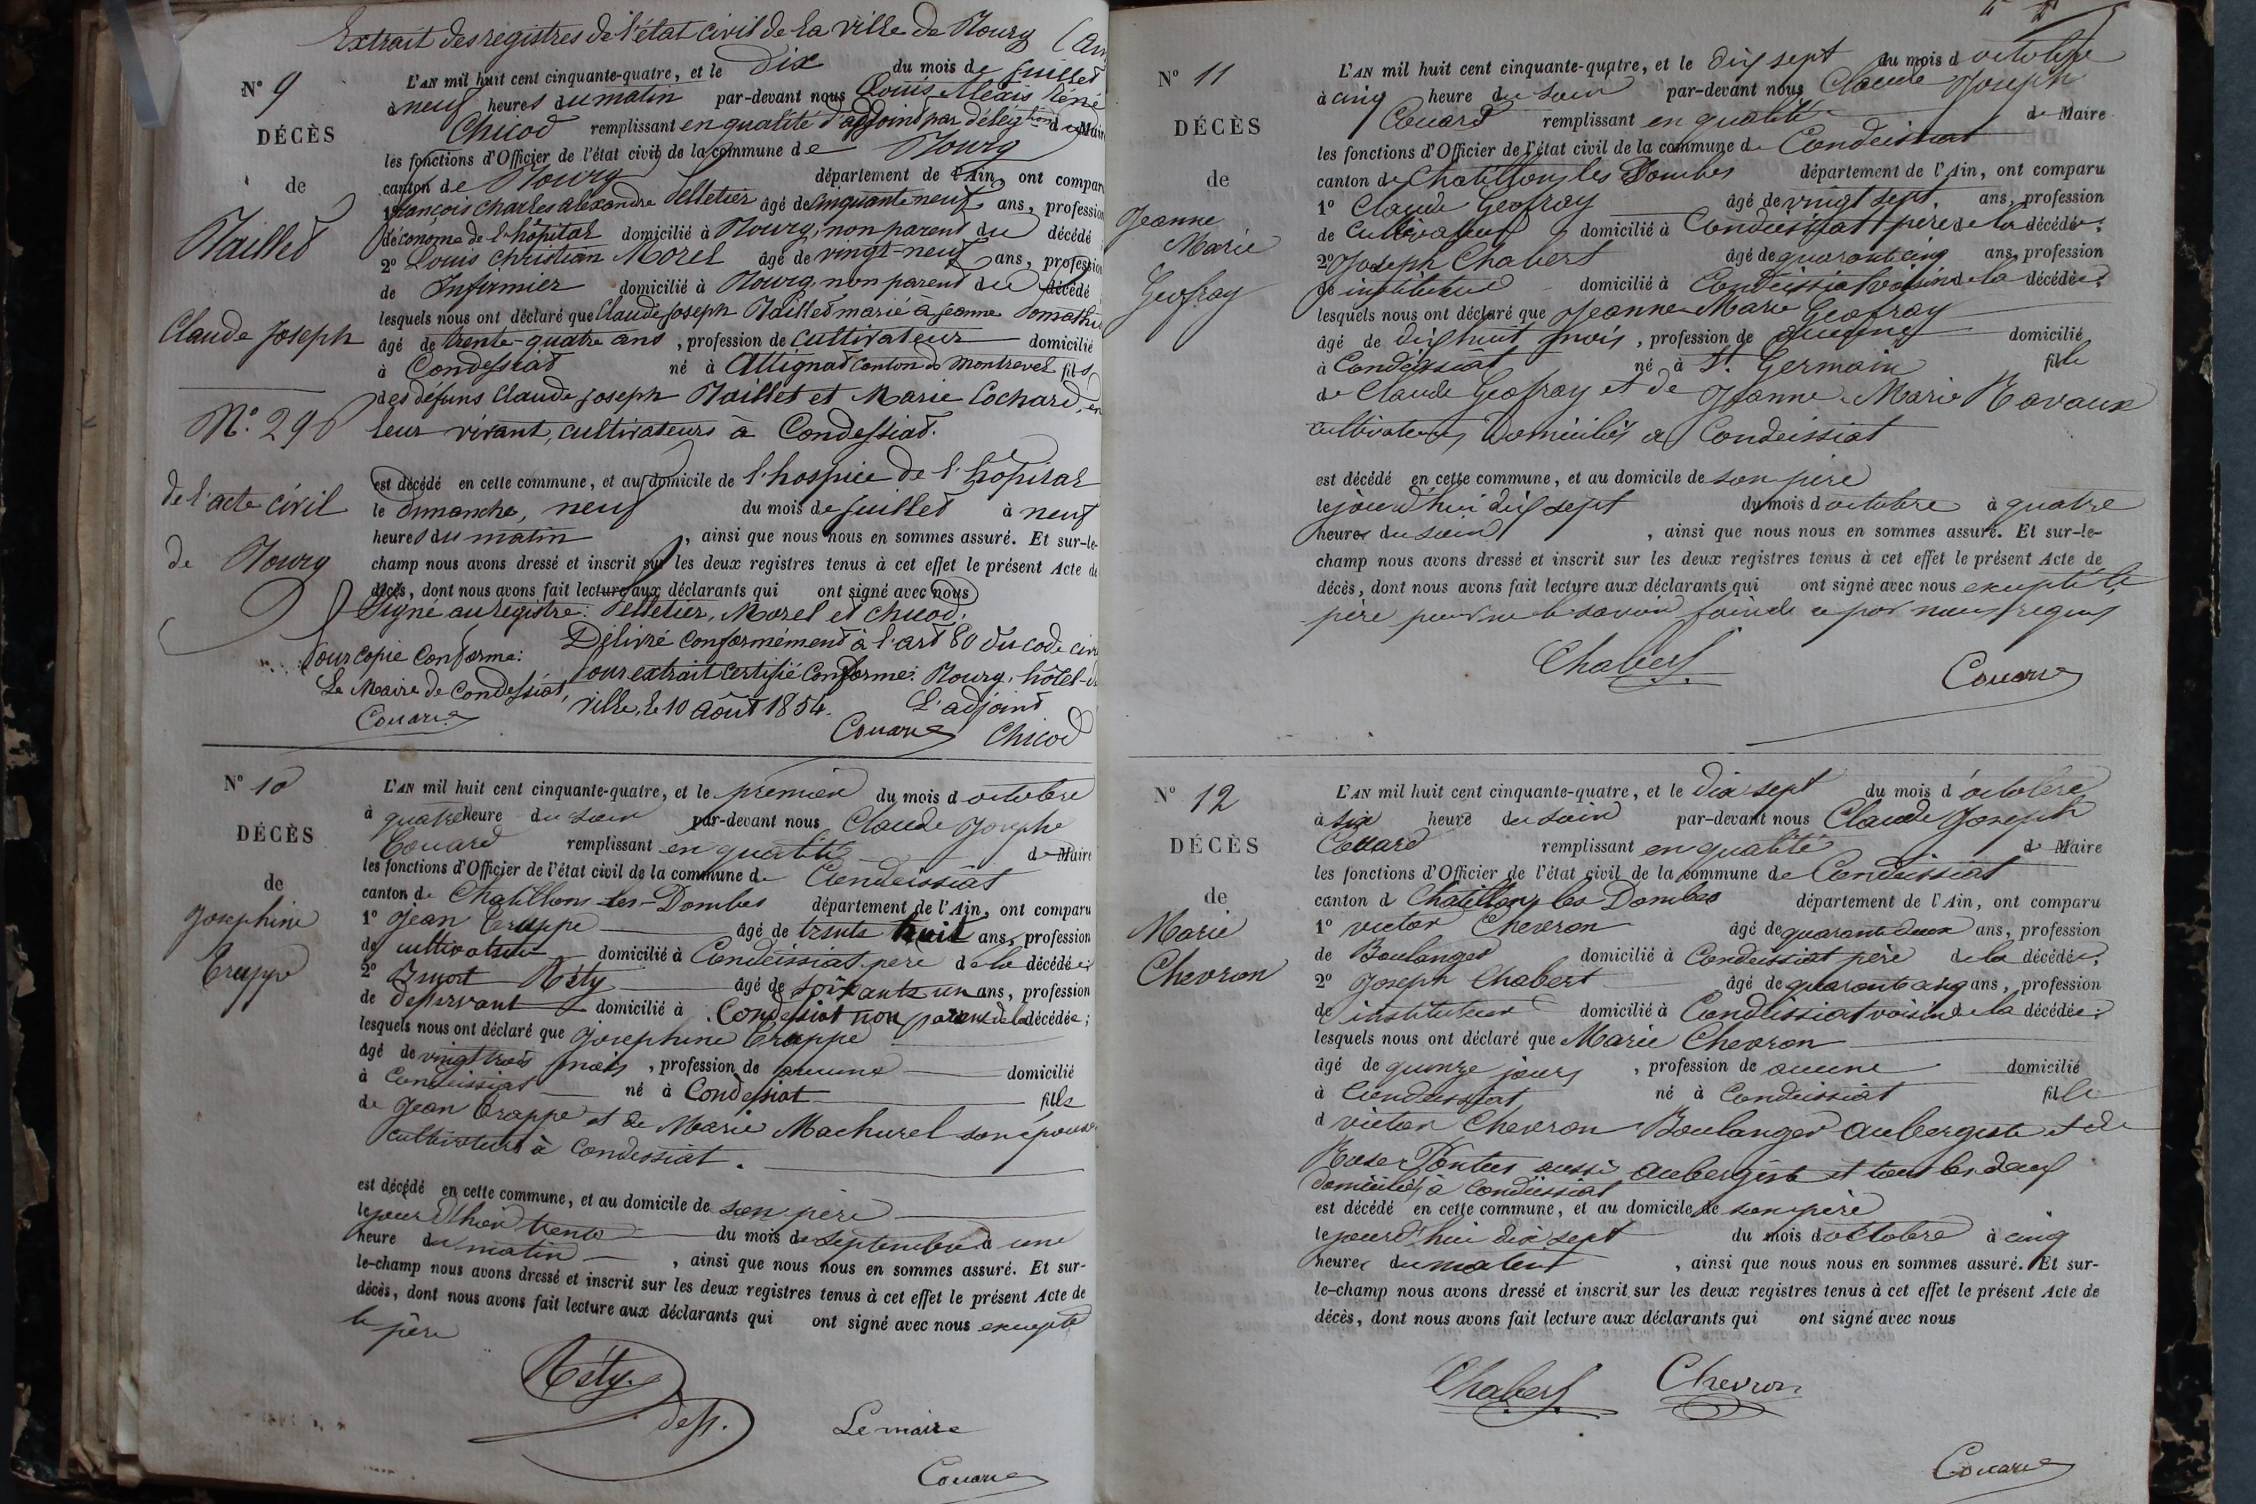 Extrait des registres de l'état civil de la ville de Bourg (Ain
N° 9
DÉCÈS
de
Baillet
Claude Joseph
N° 296
de l'acte civil
de Bourg
L'AN mil huit cent cinquante-quatre, et le dix du mois de juillet
à neuf heures du matin par-devant nous Louis Alexis Réné
Chicod remplissant en qualité d'adjoint par délégtion du Maire
les fonctions d'Officier de l'état civil de la commune de Bourg
canton de Bourg département de l'Ain, ont comparu
1° François Charles Alexandre Pelletier âgé de cinquante neuf ans, profession
d'économe de l'hôpital domicilié à Bourg, non parent du décédé
2° Louis Christian Morel âgé de vingt-neuf ans, profession
de Infirmier domicilié à Bourg non parent du décédé
lesquels nous ont déclaré que Claude Joseph Baillet marié à Jeanne
âgé de trente-quatre ans, profession de cultivateur domicilié
à Condessiat né à Attignat canton de Montrevel fils
des défuns Claude Joseph Baillet et Marie Cochard, en
leur vivant, cultivateurs à Condessiat.
est décédé en cette commune, et au domicile de l'hospice de l'hôpital
le dimanche, neuf du mois de juillet à neuf
heures du matin, ainsi que nous nous en sommes assuré. Et sur-le-
champ nous avons dressé et inscrit sur les deux registres tenus à cet effet le présent Acte de
décès, dont nous avons fait lecture aux déclarants qui ont signé avec nous
Signé au registre: Pelletier, Morel et Chicod.
Délivré conformément à l'art 80 du code civil
Pour copie conforme: Pour extrait certifié conforme: Bourg, hôtel-de
Le Maire de Condessiat, ville, le 10 Août 1854. L'adjoint
Couard Couard Chicod
N° 10
DÉCÈS
de
Josephine
Trappe
L'AN mil huit cent cinquante-quatre, et le premier du mois d octobre
à quatre heure du soir par-devant nous Claude Josephe
Couard remplissant en qualité de Maire
les fonctions d'Officier de l'état civil de la commune de Condeissiat
canton de Chatillons-les-Dombes département de l'Ain, ont comparu
1° Jean Trappe âgé de trente huit ans, profession
de cultivateur domicilié à Condeissiat père de la décédée;
2° Réty âgé de soixante un ans, profession
de desservant domicilié à Condessiat non parent de la décédée;
lesquels nous ont déclaré que Josephine Trappe
âgé de vingt trois mois, profession de aucune domicilié
à Condeissiat né à Condessiat fille
de Jean Trappe et de Marie Machurel son épouse
cultivateurs à Condessiat.
est décédé en cette commune, et au domicile de son père
le jour d'hier trente du mois de septembre à une
heure du matin, ainsi que nous nous en sommes assuré. Et sur-
le-champ nous avons dressé et inscrit sur les deux registres tenus à cet effet le présent Acte de
décès, dont nous avons fait lecture aux déclarants qui ont signé avec nous excepté
le père
Réty
dess.
Le maire
Couard
N° 11
DÉCÈS
de
Jeanne
Marie
Geofray
L'AN mil huit cent cinquante-quatre, et le dix sept du mois d octobre
à cinq heure du soir par-devant nous Claude Joseph
Couard remplissant en qualité de Maire
les fonctions d'Officier de l'état civil de la commune de Condeissiat
canton de Chatillon les Dombes département de l'Ain, ont comparu
1° Claude Geofray âgé de vingt sept ans, profession
de Cultivateur domicilié à Condeissiat père de la décédée;
2° Joseph Chabert âgé de quarante cinq ans, profession
de instituteur domicilié à Condeissiat voisin de la décédée;
lesquels nous ont déclaré que Jeanne Marie Geofray
âgé de dix huit mois, profession de aucune domicilié
à Condeissiat né à St. Germain fille
de Claude Geofray et de Jeanne Marie Ravaux
cultivateurs domiciliés à Condeissiat
est décédé en cette commune, et au domicile de son père
le jourd'hui dix sept du mois d octobre à quatre
heures du soir, ainsi que nous nous en sommes assuré. Et sur-le-
champ nous avons dressé et inscrit sur les deux registres tenus à cet effet le présent Acte de
décès, dont nous avons fait lecture aux déclarants qui ont signé avec nous excepté le
père pour ne le savoir de ce par nous requis
Chabert
Couard
N° 12
DÉCÈS
de
Marie
Chevron
L'AN mil huit cent cinquante-quatre, et le dix sept du mois d'octobre
à six heure du soir par-devant nous Claude Joseph
Couard remplissant en qualité de Maire
les fonctions d'Officier de l'état civil de la commune de Condeissiat
canton d Chatillon les Dombes département de l'Ain, ont comparu
1° victor Chevron âgé de quarante deux ans, profession
de Boulanger domicilié à Condeissiat père de la décédée;
2° Joseph Chabert âgé de quarante cinq ans, profession
de instituteur domicilié à Condeissiat voisin de la décédée;
lesquels nous ont déclaré que Marie Chevron
âgé de quinze jours, profession de aucune domicilié
à Condeissiat né à Condeissiat fille
d victor Chevron Boulanger aubergiste et de
Rose aussi aubergiste et tous les deux
domiciliés à Condeissiat
est décédé en cette commune, et au domicile de son père
le jourd'hui dix sept du mois d octobre à cinq
heures du matin, ainsi que nous nous en sommes assuré. Et sur-
le-champ nous avons dressé et inscrit sur les deux registres tenus à cet effet le présent Acte de
décès, dont nous avons fait lecture aux déclarants qui ont signé avec nous
Chabert Chevron
Couard